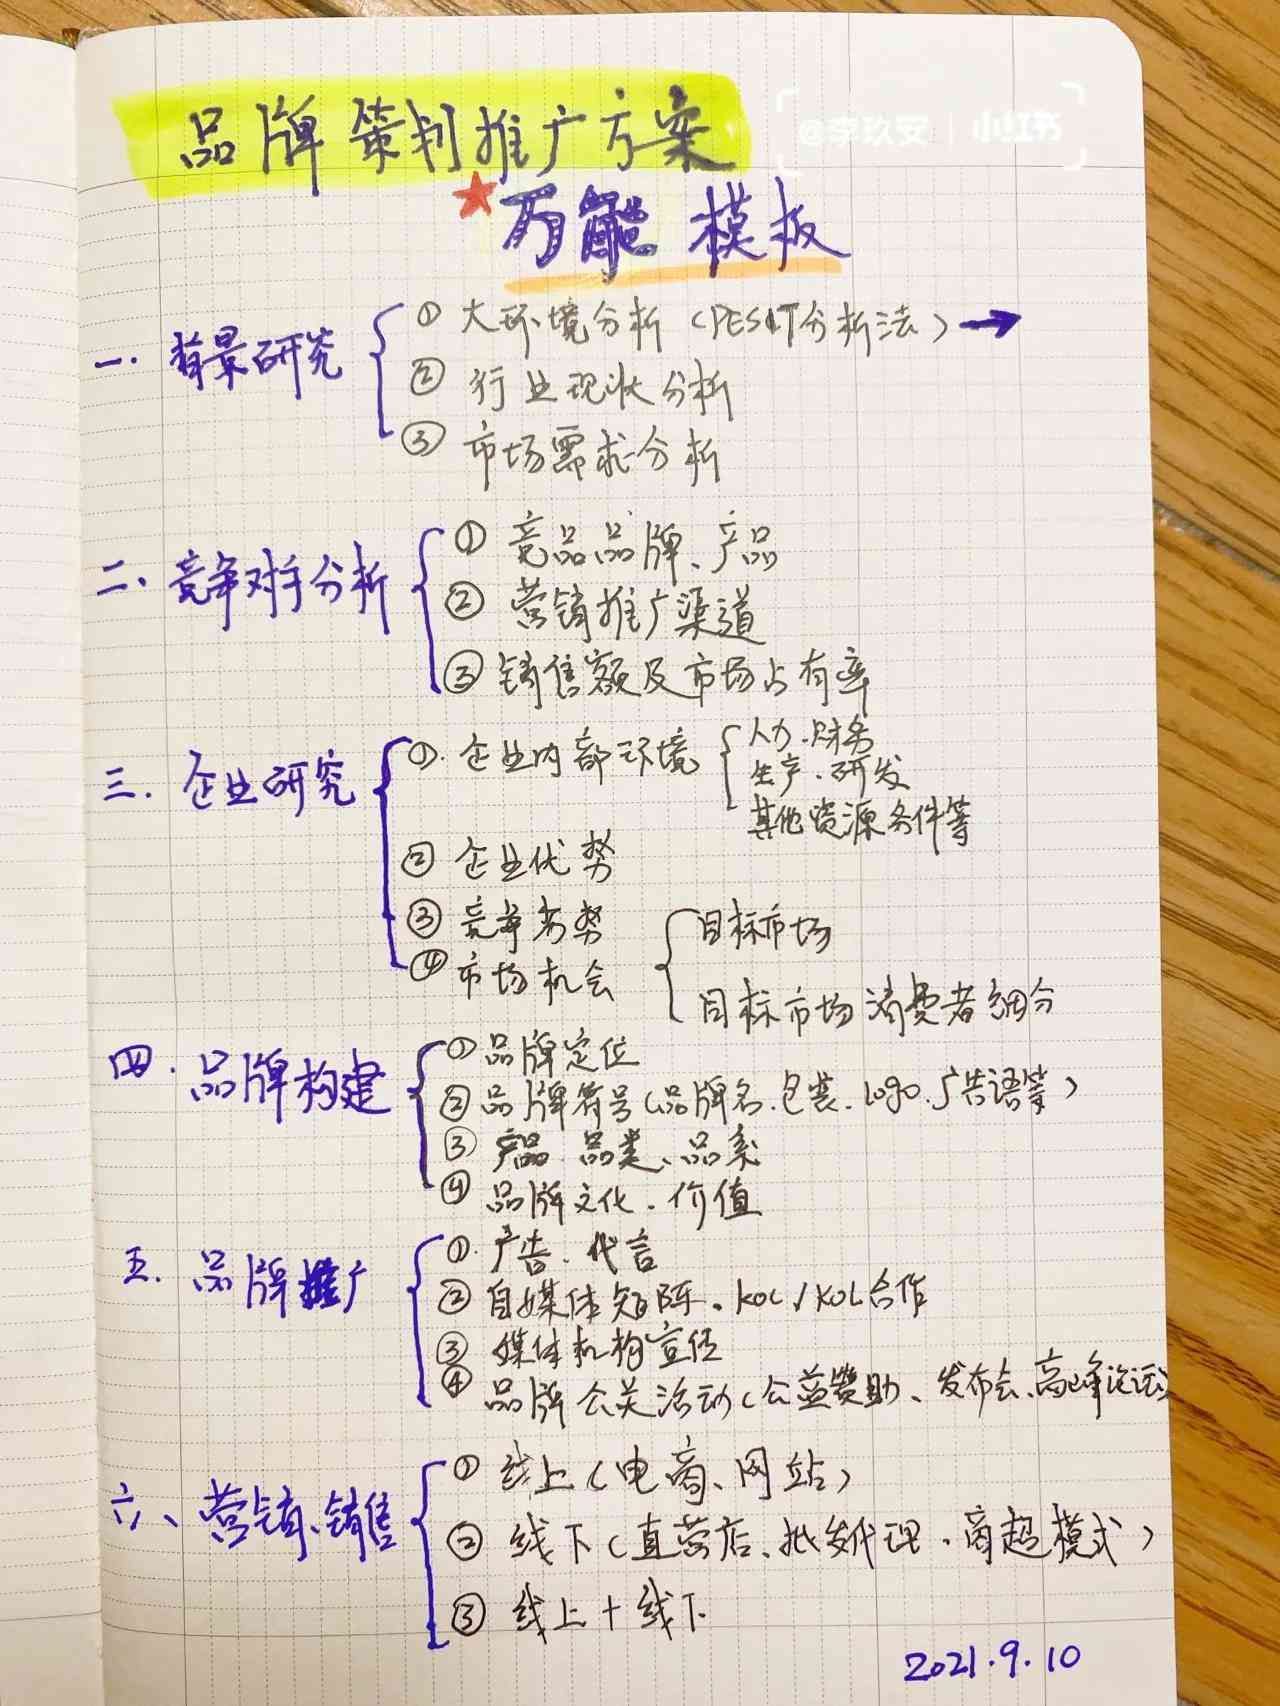 品牌策划推广方案
@李玖安 | 小红书
万能模板
一. 背景研究
① 大环境分析（PEST分析法）→
② 行业现状分析
③ 市场需求分析
二、竞争对手分析
① 竞品品牌、产品
② 营销推广渠道
③ 销售额及市场占有率
三. 企业研究
①. 企业内部环境
人力.财务
生产.研发
其他资源条件等
② 企业优势
③ 竞争劣势
④ 市场机会
目标市场
目标市场消费者细分
四. 品牌构建
① 品牌定位
② 品牌符号（品牌名.包装.logo.广告语等）
③ 产品.品类、品系
④ 品牌文化.价值
五. 品牌推广
①. 广告.代言
② 自媒体矩阵.KOC/KOL合作
③ 媒体机构宣传
④ 品牌公关活动（公益赞助、发布会、高峰论坛
六、营销、销售
① 线上（电商、网站）
② 线下（直营店、批发代理.商超模式）
③ 线上+线下
2021.9.10